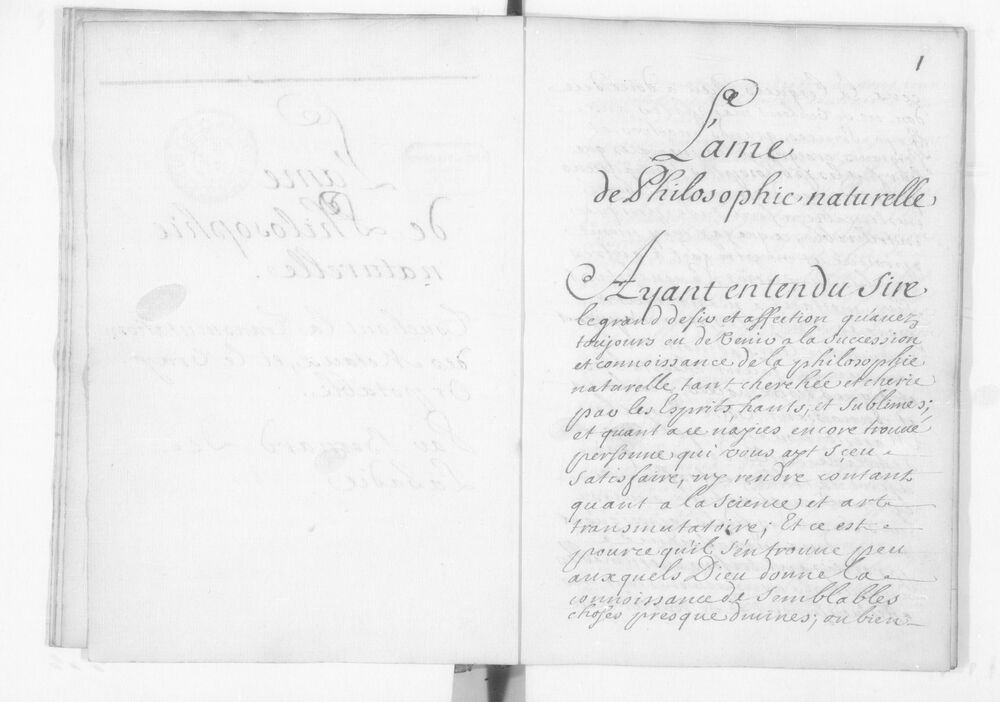 1
L'ame
de Philosophie naturelle
Ayant entendu Sire
le grand desir et affection qu'avez
toujours eu de venir a la succession
et connoissance de la philosophie
naturelle, tant cherchée et cherie
par les Esprits hauts, et sublimes;
et quant a ce n'ayies encore trouué
personne qui vous ayt sçeu
satisfaire, ny rendre contant
quant a la science et art
transmutatoire; Et ce est
pource qu'il s'en trouue peu
auxquels Dieu donne la
connoissance de semblables
choses presque diuines; ou bien